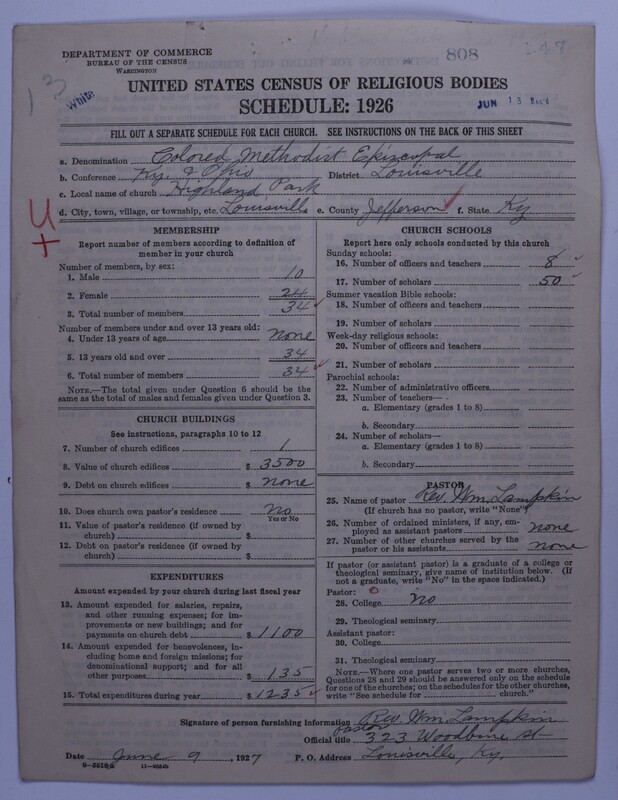 DEPARTMENT OF COMMERCE
BUREAU OF THE CENSUS
WASHINGTON
808
147
13
White
UNITED STATES CENSUS OF RELIGIOUS BODIES
SCHEDULE: 1926
JUN 13
FILL OUT A SEPARATE SCHEDULE FOR EACH CHURCH. SEE INSTRUCTIONS ON THE BACK OF THIS SHEET
a. Denomination Colored Methodist Episcopal
b. Conference Ky. & Ohio District Louisville
c. Local name of church Highland Park
d. City, town, village, or township, etc. Louisville e. County Jefferson f. State Ky
U
+
MEMBERSHIP
Report number of members according to definition of
member in your church
Number of members, by sex:
1. Male 10
2. Female 24
3. Total number of members 34
Number of members under and over 13 years old:
4. Under 13 years of age none
5. 13 years old and over 34
6. Total number of members 34
NOTE.—The total given under Question 6 should be
same as the total of males and females given under Question 3.
CHURCH BUILDINGS
See instructions, paragraphs 10 to 12
7. Number of church edifices 1
8. Value of church edifices $ 3500
9. Debt on church edifices $ none
10. Does church own pastor's residence? no
Yes or No
11. Value of pastor's residence (if owned by
church) $
12. Debt on pastor's residence (if owned by
church) $
EXPENDITURES
Amount expended by your church during last fiscal year
13. Amount expended for salaries, repairs,
and other running expenses; for im-
provements or new buildings; and for
payments on church debt $ 1100
14. Amount expended for benevolences, in-
cluding home and foreign missions; for
denominational support; and for all
other purposes $ 135
15. Total expenditures during year $ 1235
CHURCH SCHOOLS
Report here only schools conducted by this church
Sunday schools:
16. Number of officers and teachers 8
17. Number of scholars 50
Summer vacation Bible schools:
18. Number of officers and teachers
19. Number of scholars
Week-day religious schools:
20. Number of officers and teachers
21. Number of scholars
Parochial schools:
22. Number of administrative officers
23. Number of teachers—
a. Elementary (grades 1 to 8)
b. Secondary
24. Number of scholars—
a. Elementary (grades 1 to 8)
b. Secondary
PASTOR
25. Name of pastor Rev. Wm. Lampkin
(If church has no pastor, write "None")
26. Number of ordained ministers, if any, em-
ployed as assistant pastors none
27. Number of other churches served by the
pastor or his assistants none
If pastor (or assistant pastor) is a graduate of a college or
theological seminary, give name of institution below. (If
not a graduate, write "No" in the space indicated.)
Pastor:
28. College no
29. Theological seminary
Assistant pastor:
30. College
31. Theological seminary
NOTE.—Where one pastor serves two or more churches,
Questions 28 and 29 should be answered only on the schedule
for one of the churches; on the schedules for the other churches,
write "See schedule for church."
Signature of person furnishing information Rev. Wm Lampkin
Official title pastor 323 Woodbine St
Date June 9, 1927 P. O. Address Louisville, Ky.